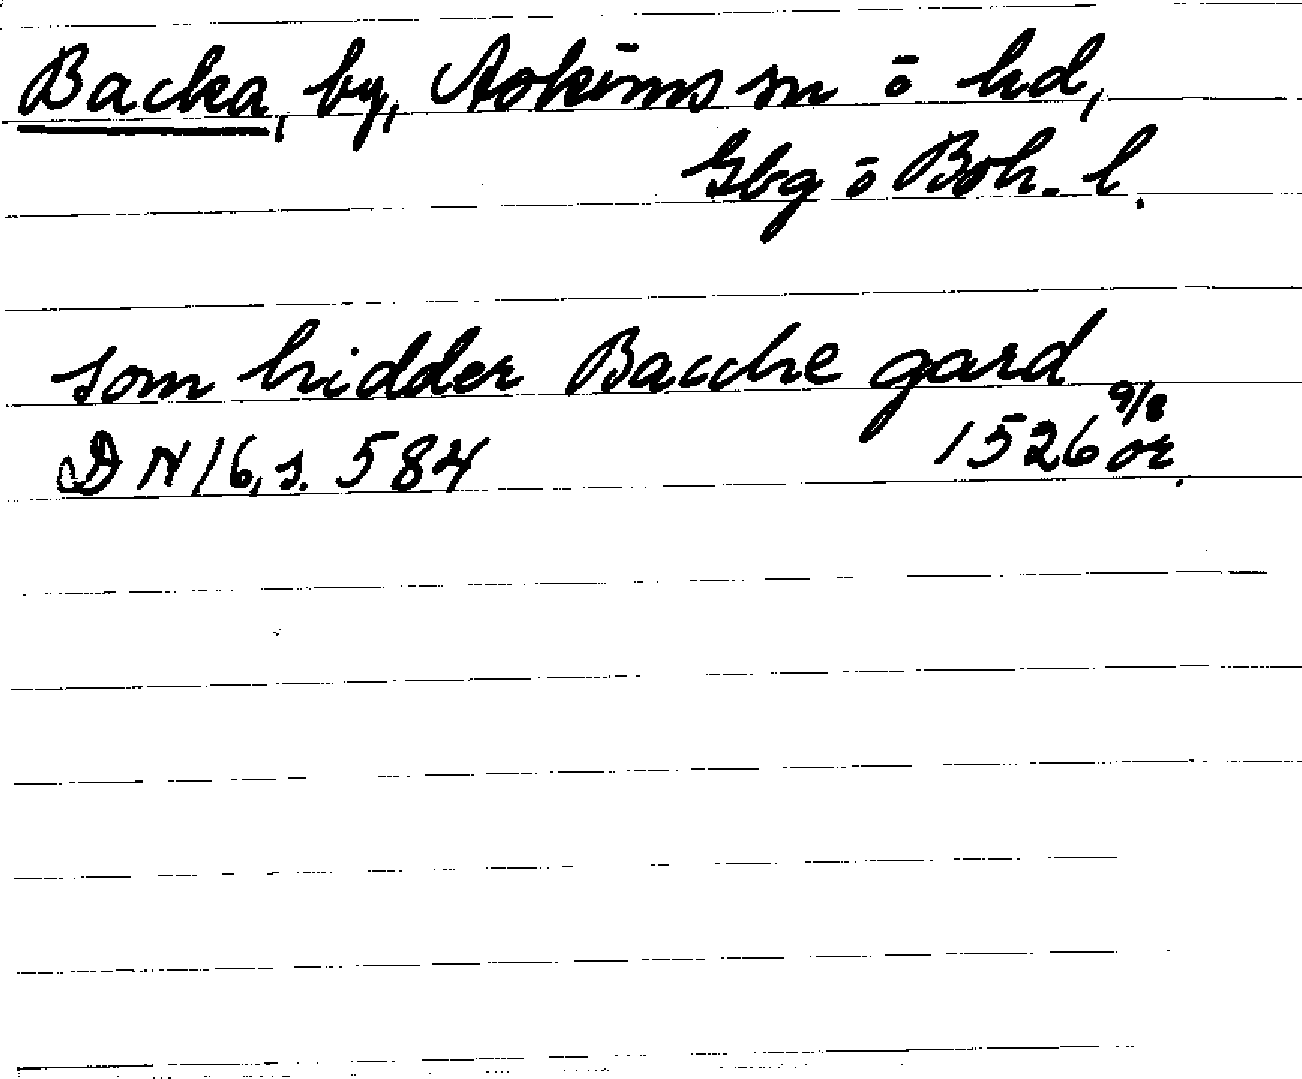 Backa, by, Askims sn ō hd,
Gbg ō Boh. l.
som hidder Bacche gard
DN 16, s. 584 1526 9/8 or.